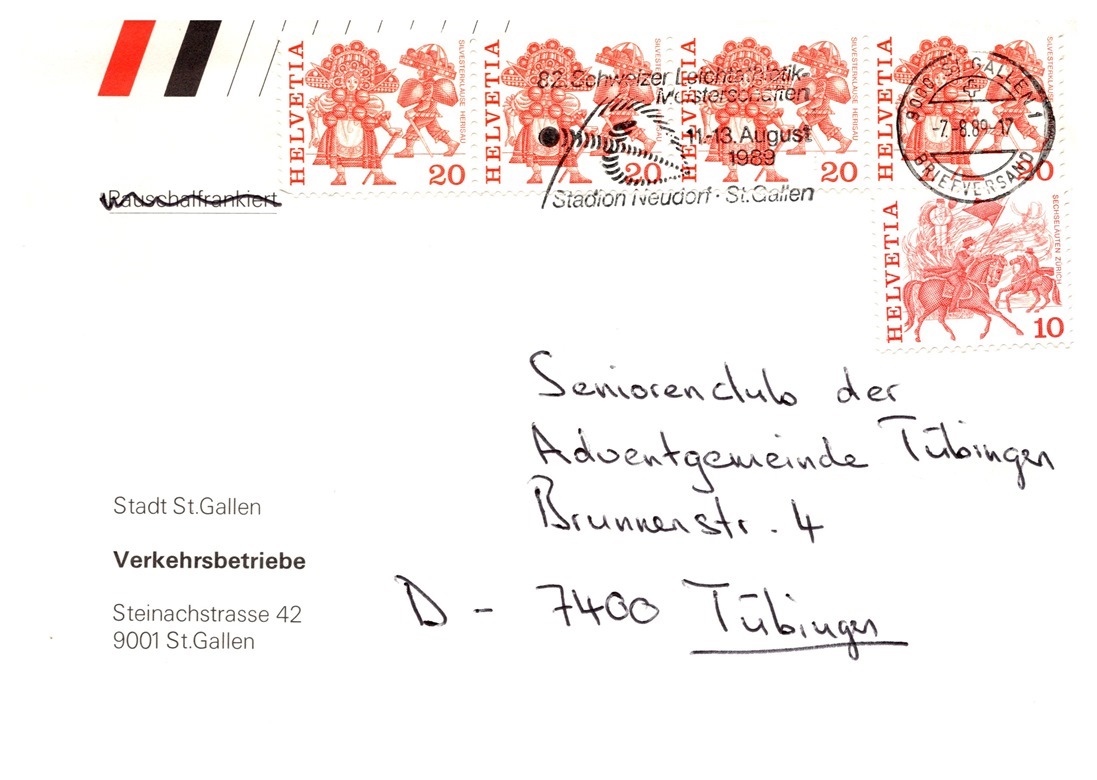 HELVETIA
SILVESTERKLÄUSE HERISAU
20
HELVETIA
SILVESTERKLÄUSE HERISAU
20
HELVETIA
SILVESTERKLÄUSE HERISAU
20
HELVETIA
SILVESTERKLÄUSE HERISAU
20
82. Schweizer Leichtathletik-
Meisterschaften
11.-13. August
1989
Stadion Neudorf · St.Gallen
9000 ST. GALLEN 1
-7.-8.89-17
BRIEFVERSAND
Pauschalfrankiert
HELVETIA
SECHSELÄUTEN ZÜRICH
10
Seniorenclub der
Adventgemeinde Tübingen
Brunnenstr. 4
D - 7400 Tübingen
Stadt St.Gallen
Verkehrsbetriebe
Steinachstrasse 42
9001 St.Gallen